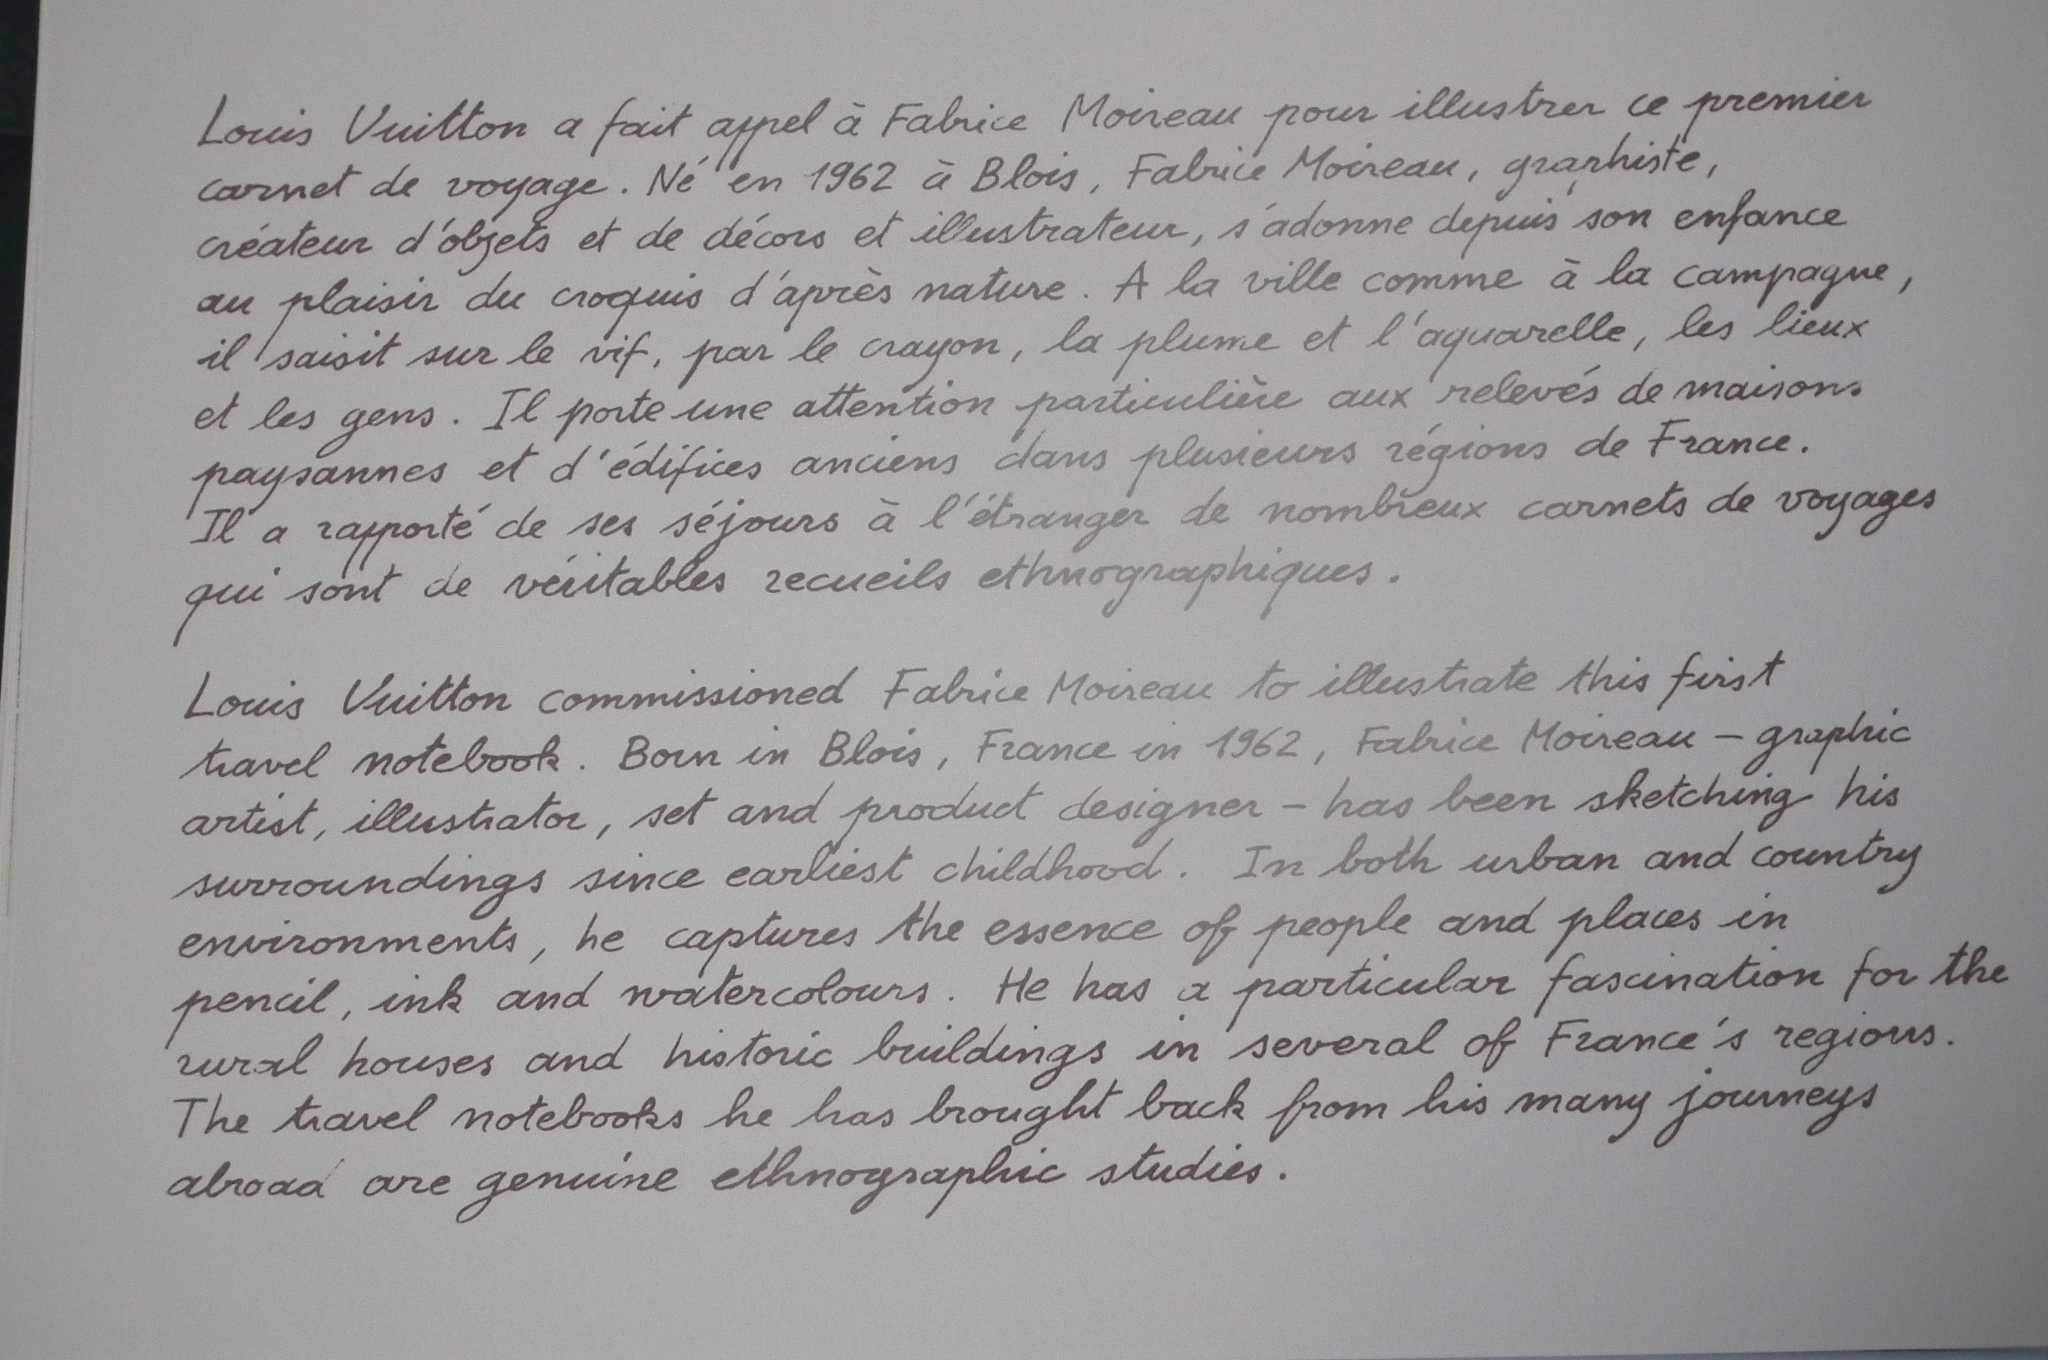 Louis Vuitton a fait appel à Fabrice Moireau pour illustrer ce premier
carnet de voyage. Né en 1962 à Blois, Fabrice Moireau, graphiste,
créateur d'objets et de décors et illustrateur, s'adonne depuis son enfance
au plaisir du croquis d'après nature. A la ville comme à la campagne,
il saisit sur le vif, par le crayon, la plume et l'aquarelle, les lieux
et les gens. Il porte une attention particulière aux relevés de maisons
paysannes et d'édifices anciens dans plusieurs régions de France.
Il a rapporté de ses séjours à l'étranger de nombreux carnets de voyages
qui sont de véritables recueils ethnographiques.
Louis Vuitton commissioned Fabrice Moireau to illustrate this first
travel notebook. Born in Blois, France in 1962, Fabrice Moireau – graphic
artist, illustrator, set and product designer – has been sketching his
surroundings since earliest childhood. In both urban and country
environments, he captures the essence of people and places in
pencil, ink and watercolours. He has a particular fascination for the
rural houses and historic buildings in several of France's regions.
The travel notebooks he has brought back from his many journeys
abroad are genuine ethnographic studies.